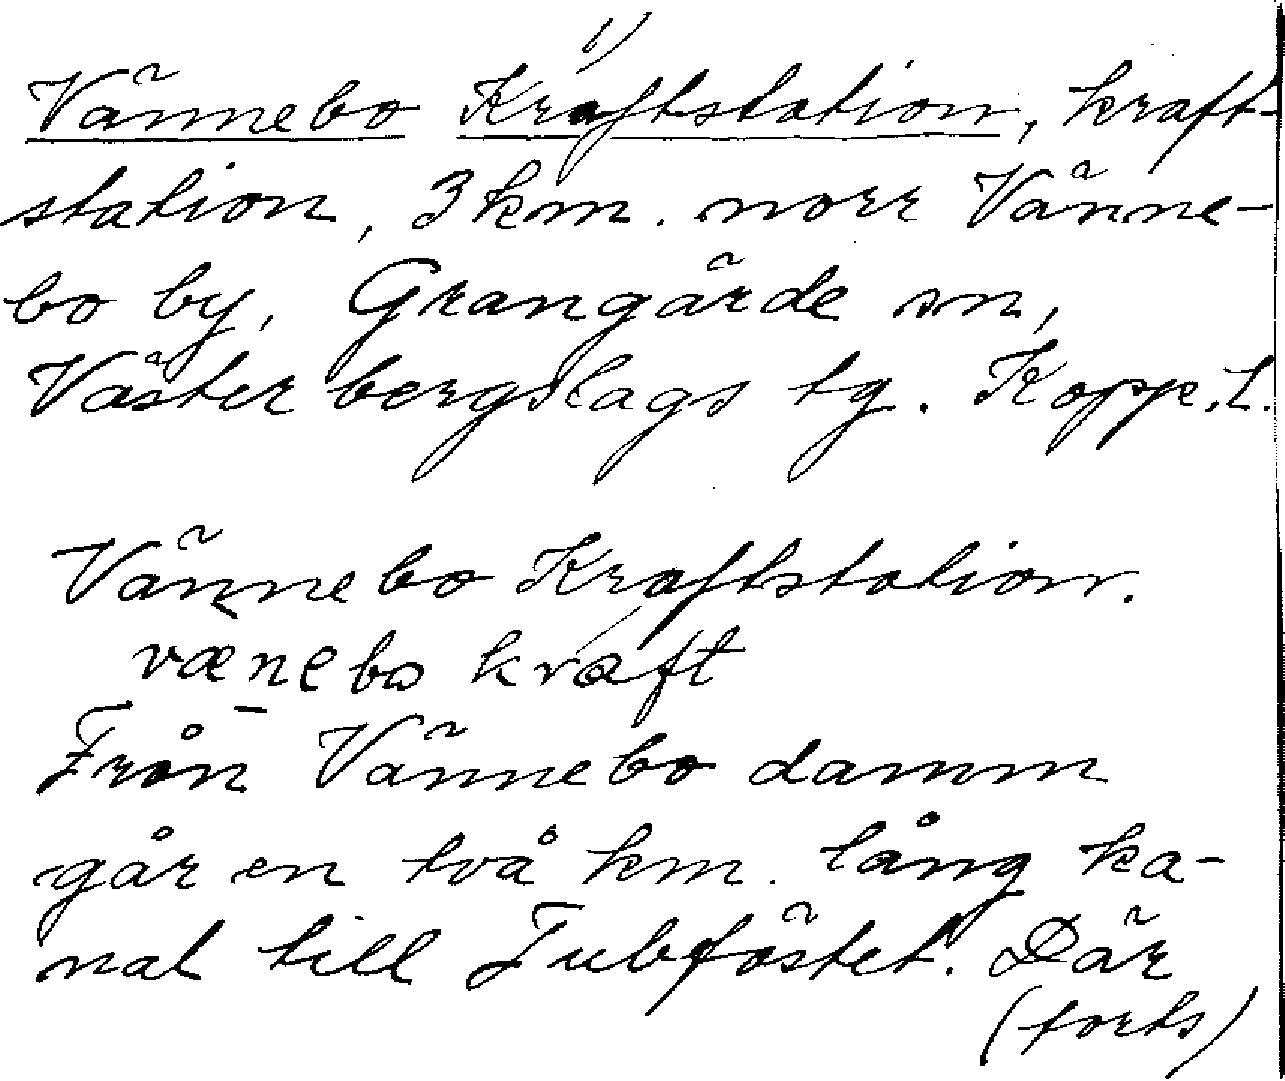 1)
Vännebo Kraftstation, kraft-
station, 3 km. norr Vänne-
bo by, Grangärde sn,
Västerbergslags tg. Kopp. l.
Vännebo Kraftstation.
vænebo kraft
Från Vännebo damm
går en två km. lång ka-
nal till Tubfästet. Där
(forts)